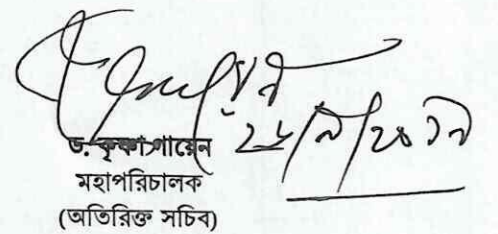 ড. কৃষ্ণা গায়েন
মহাপরিচালক
(অতিরিক্ত সচিব)